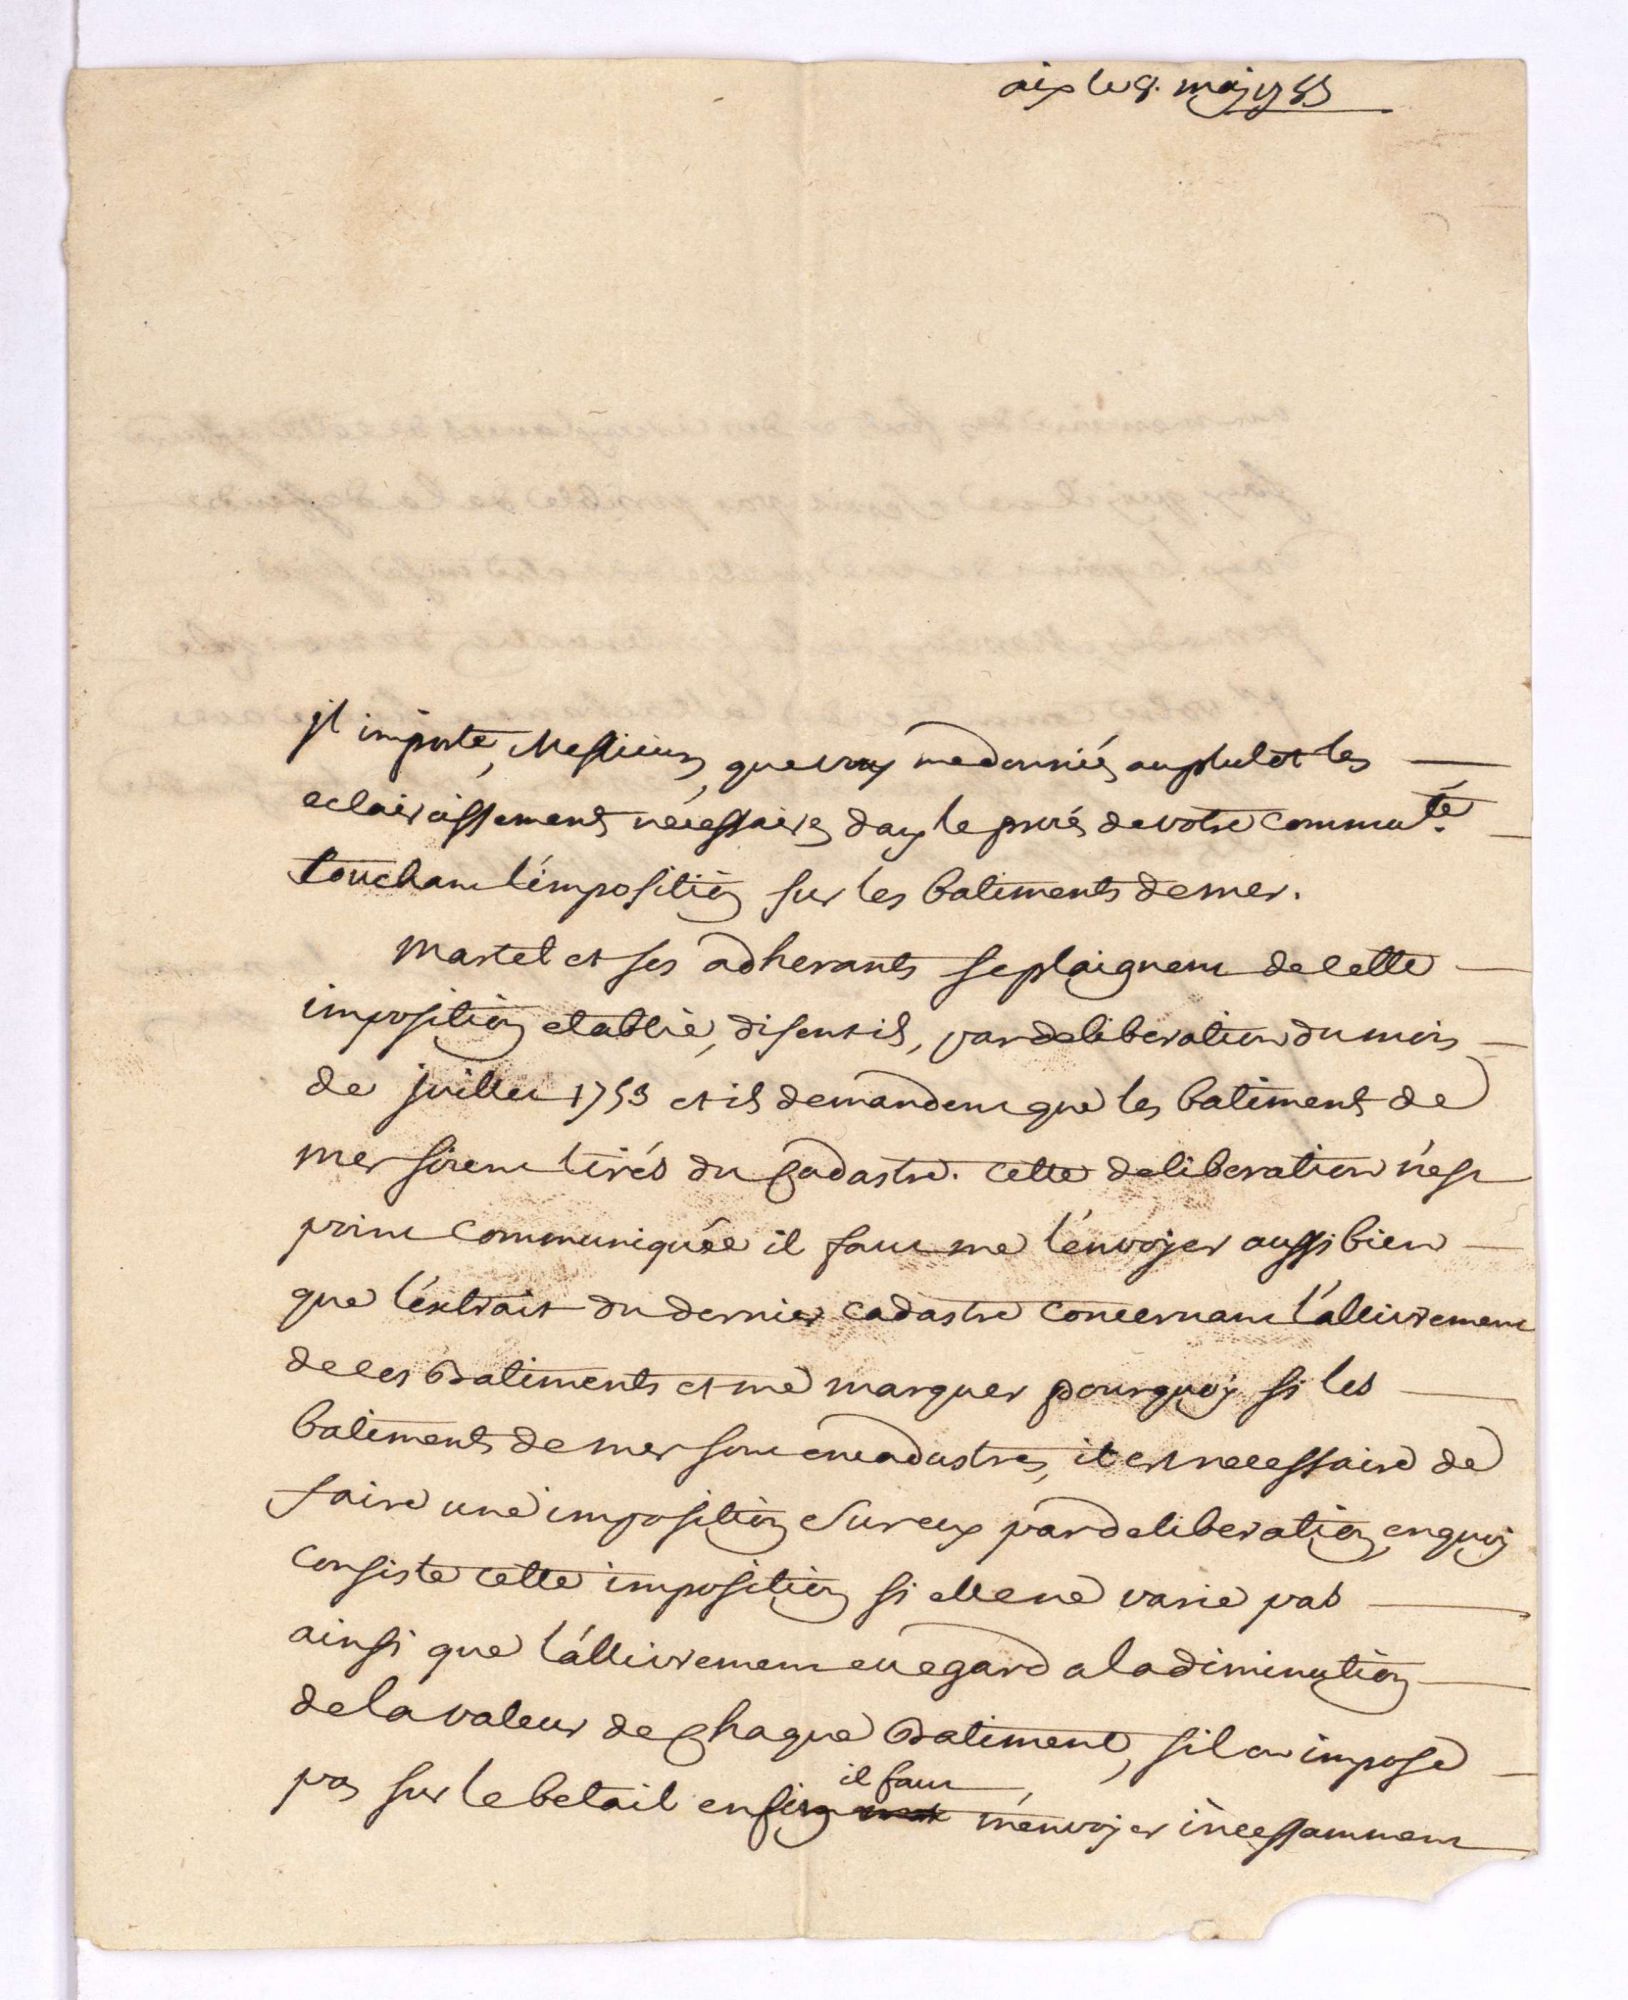 aix le 8. maj 1755
jl importe, Messieurs, que vous me donniés au plutot les
eclaircissements nécessaires dans le procés de votre commu.té
touchant l'imposition sur les batiments de mer.
Martel et ses adherants se plaignent de cette
imposition etablie, disent ils, par deliberation du mois
de juillet 1753 et ils demandent que les batiments de
mer soient tirés du Cadastre. cette deliberation n'est
point communiquée il faut me l'envoyer aussi bien
que l'extrait du dernier cadastre concernant l'allivrement
de ces Batiments et me marquer pourquoy si les
batiments de mer sont encadastres, il est necessaire de
faire une imposition sur eux par deliberation, en quoy
consiste cette imposition si elle ne varie pas
ainsi que l'allivrement eu egard a la diminution
de la valeur de Chaque Batiment, si l'on impose
pas sur le betail enfin il faut m'envoyer incessamment